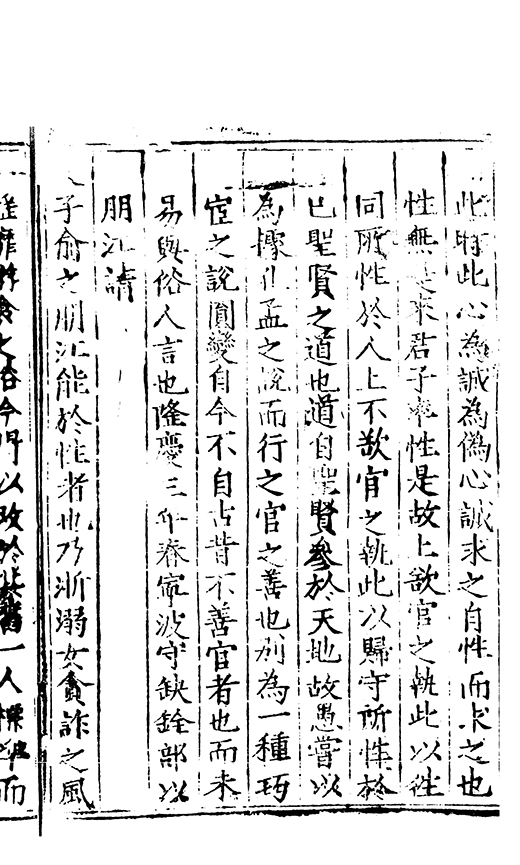 此時此心為誠為偽心誠求之自性而求之也
性無足來君子率性是故上欲官之執此以往
同所性於人上不欲官之執此以歸守所性於
已聖賢之道也道自聖賢參於天地故愚嘗以
為據孔孟之說而行之官之善也別為一種巧
宦之說圓變自今不自占昔不善官者也而未
易與俗人言也隆慶三年春寧波守缺銓部以
朋江請
子俞之朋江能於性者也乃浙溺女貪詐之風
之俗今丹以改於一人而